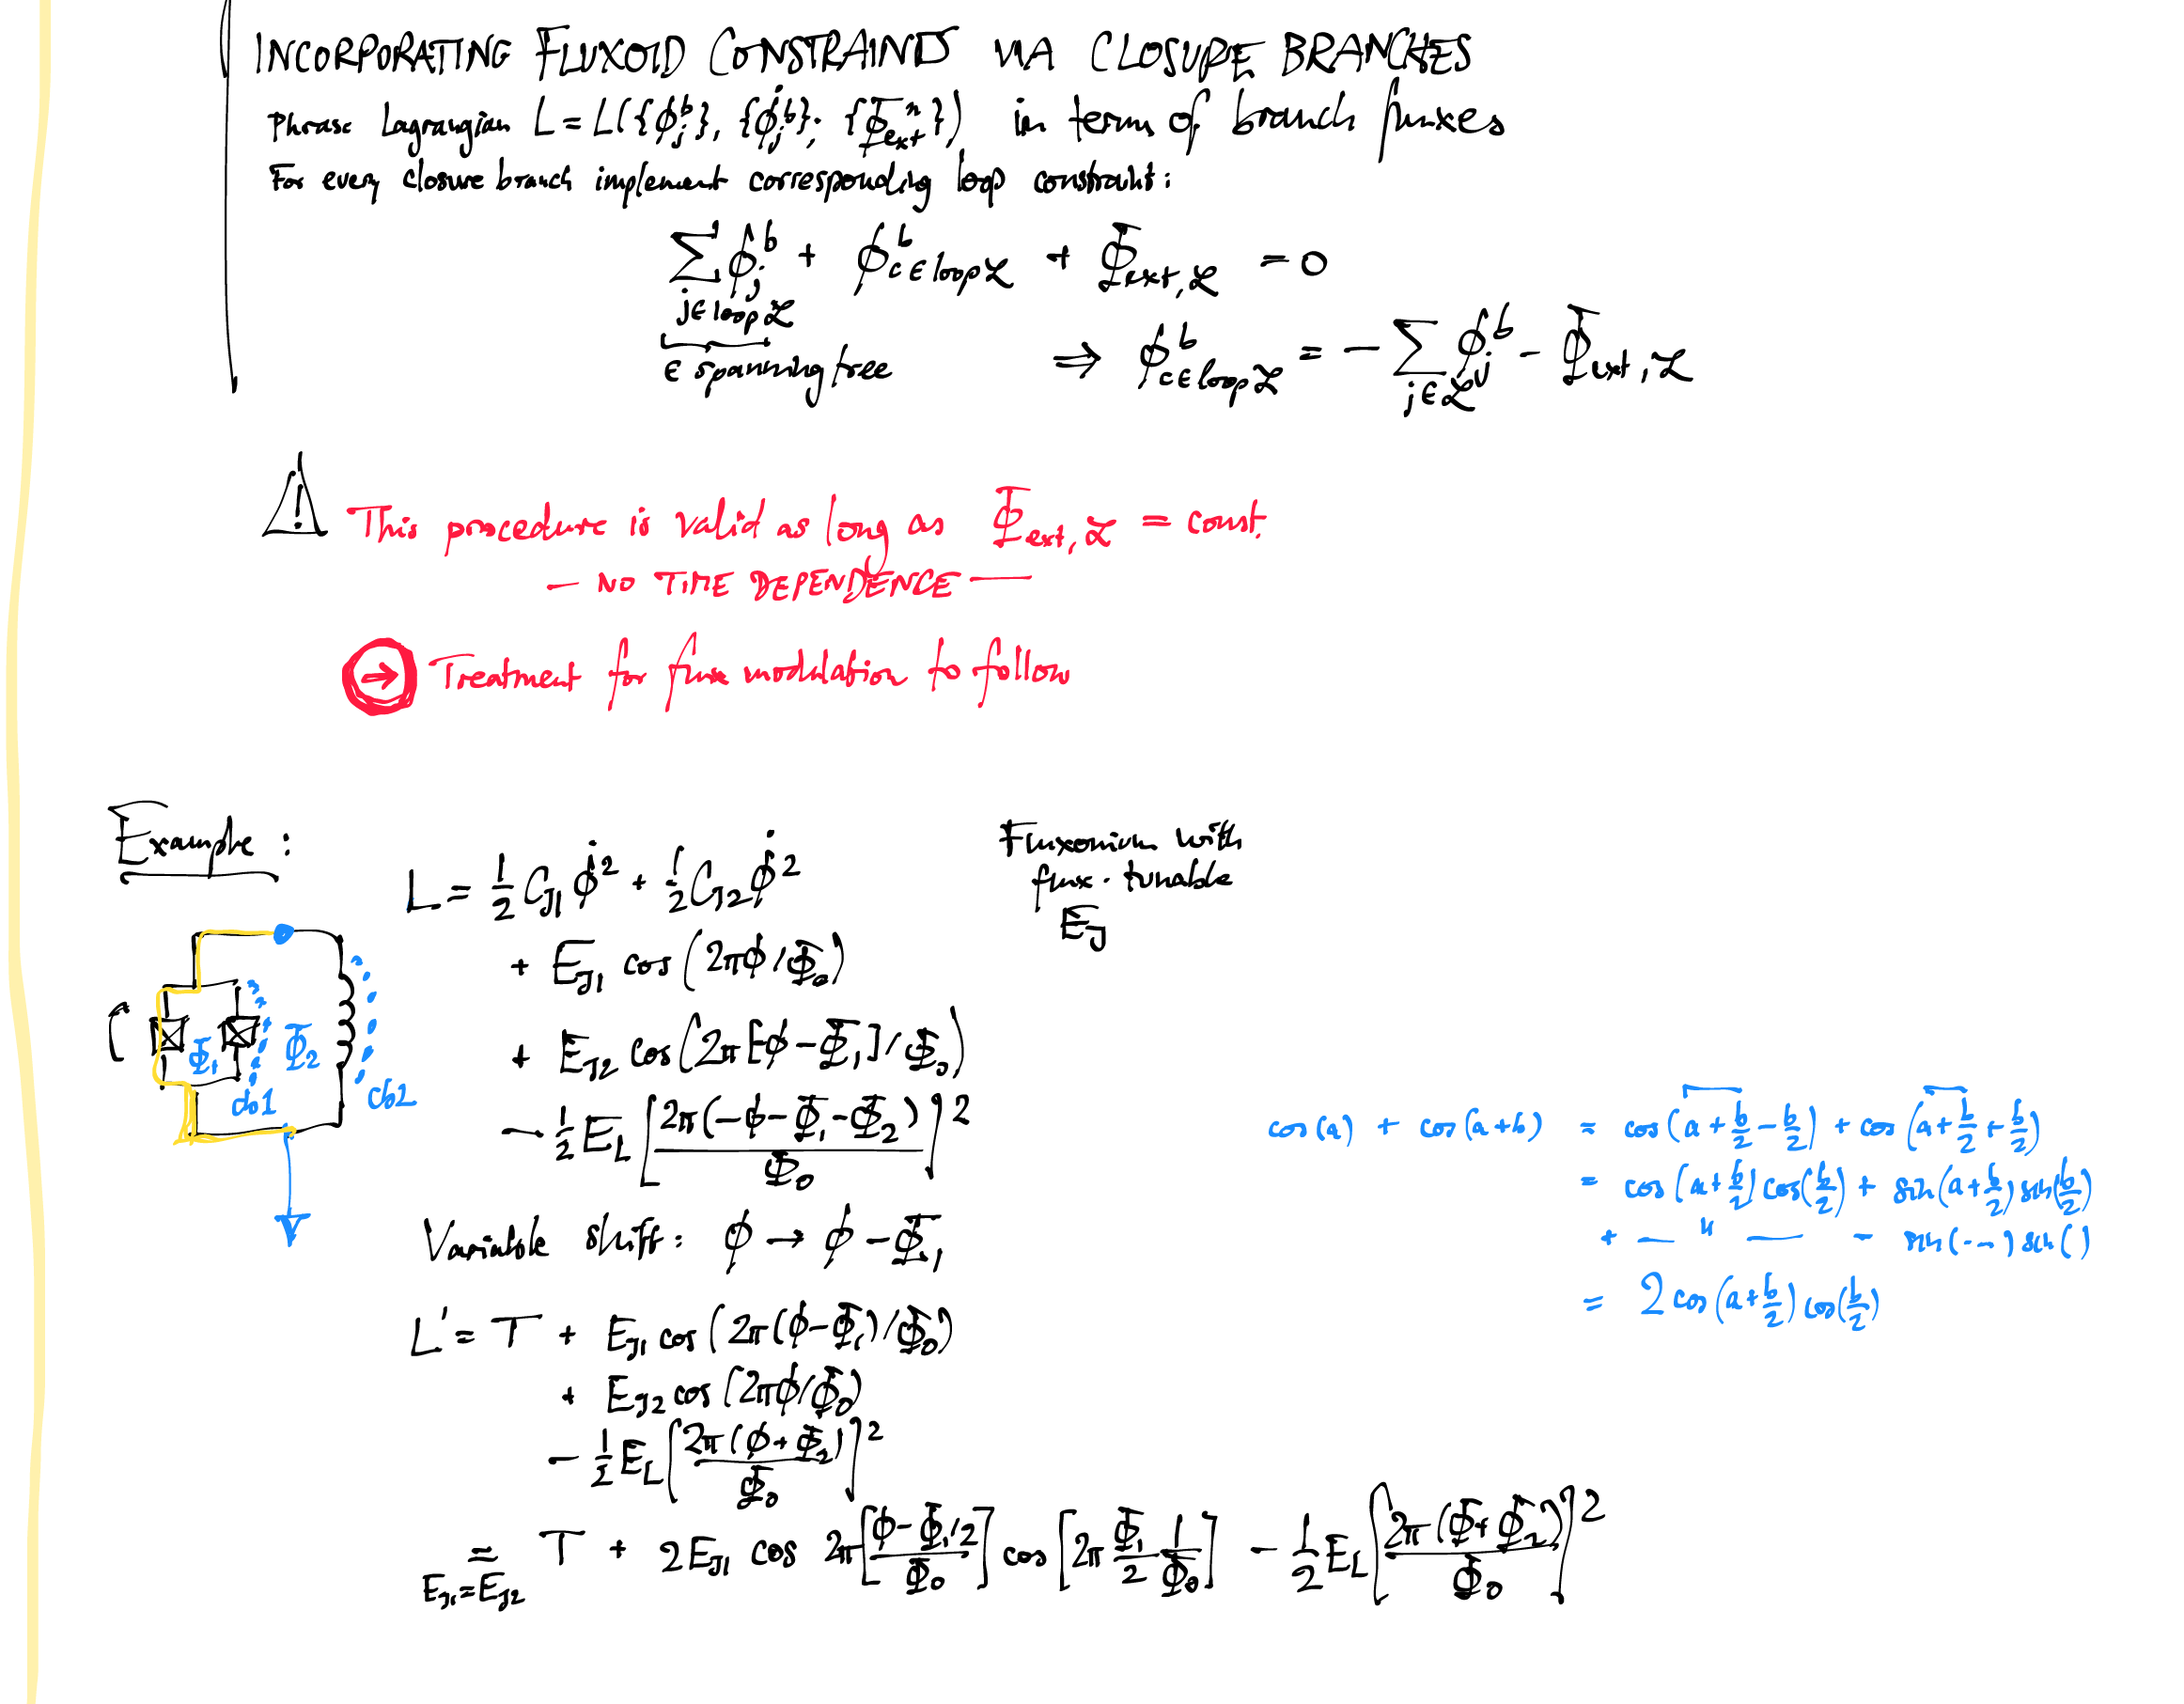 INCORPORATING FLUXOID CONSTRAINTS VIA CLOSURE BRANCHES
Phrase Lagrangian L = L({ϕ_j^b}, {ϕ̇_j^b}; {Φ_ext^n}) in terms of branch fluxes
For every closure branch implement corresponding loop constraint:
∑_{j∈loop ℒ} ϕ_j^b + ϕ^b_{c∈loop ℒ} + Φ_{ext,ℒ} = 0
∈ spanning tree ⇒ ϕ^b_{c∈loop ℒ} = − ∑_{j∈ℒ} ϕ_j^b − Φ_{ext,ℒ}
⚠ This procedure is valid as long as Φ_{ext,ℒ} = const.
— NO TIME DEPENDENCE —
→ Treatment for flux modulation to follow
Example:
Fluxonium with
flux-tunable
E_J
L = ½ C_J1 ϕ̇² + ½ C_J2 ϕ̇²
+ E_J1 cos(2πϕ/Φ_0)
+ E_J2 cos(2π[-ϕ−Φ_1]/Φ_0)
− ½ E_L [2π(−ϕ−Φ_1−Φ_2)/Φ_0]²
Φ_1 Φ_2
cb1 cb2
Variable shift: ϕ → ϕ − Φ_1
L' = T + E_J1 cos(2π(ϕ−Φ_1)/Φ_0)
+ E_J2 cos(2πϕ/Φ_0)
− ½ E_L [2π(ϕ+Φ_2)/Φ_0]²
= T + 2E_J1 cos 2π[(ϕ−Φ_1/2)/Φ_0] cos[2π Φ_1/2 1/Φ_0] − ½ E_L [2π(Φ+Φ_2)/Φ_0]²
E_J1=E_J2
cos(a) + cos(a+b) = cos(a+b/2−b/2) + cos(a+b/2+b/2)
= cos(a+b/2) cos(b/2) + sin(a+b/2) sin(b/2)
+ — " — − sin(--) sin( )
= 2 cos(a+b/2) cos(b/2)